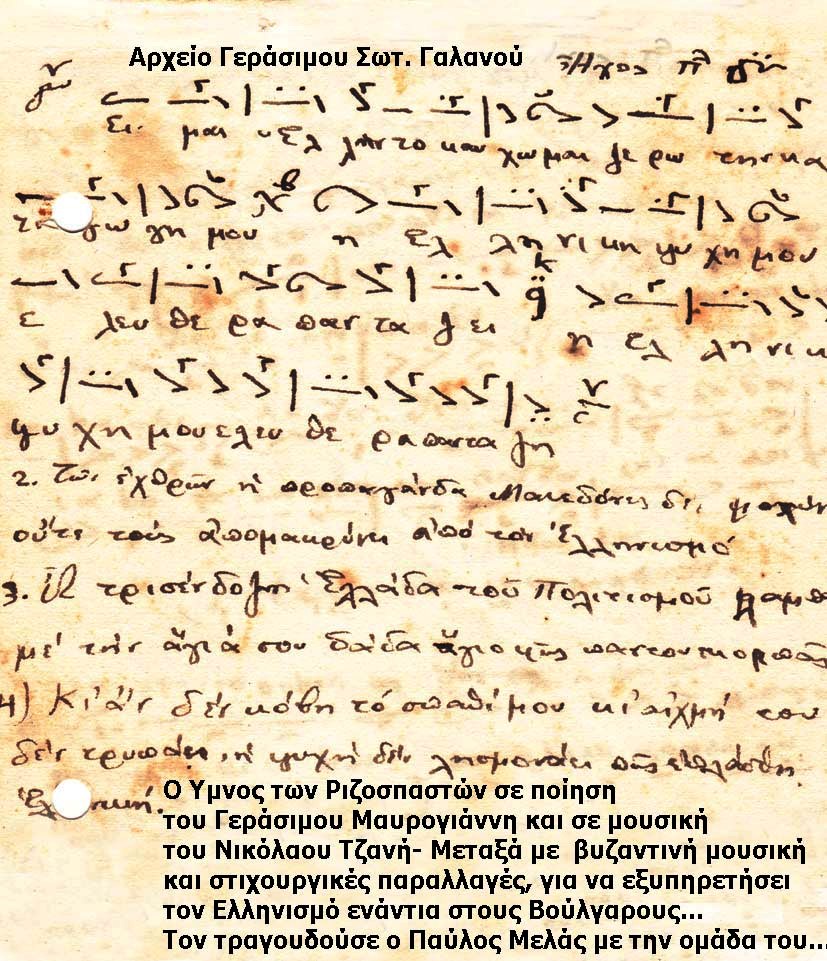 Αρχείο Γεράσιμου Σωτ. Γαλανού
Ἦχος πλ
Ει μαι υ Ελ λην το καυ χω μαι ξε ρω την κα
τα γω γη μου η Ελ λη νι κη ψυ χη μου
ε λευ θε ρα παν τα ζει η Ελ λη νι κ
ψυ χη μου ε λευ θε ρα παν τα ζη
2. Των ἐχθρῶν ἡ προπαγάνδα Μακεδόνες δε
οὔτε τούς ἀπομακρύνει ἀπό τον Ἑλληνισμό
3. Ἡ τρισένδοξη Ἑλλάδα τοῦ Πολιτισμοῦ
με τήν ἅγιά σου δάδα ἅγιο φῶς παντου σκορπᾶς
4) Κι ἄν δέν κόβη τό σπαθί μου κι αἰχμή του
δέν τρυπάει, ἡ ψυχή δέν λησμονάει πῶς ἐπλάσθη
Ἑλληνική.
Ο Υμνος των Ριζοσπαστών σε ποίηση
του Γεράσιμου Μαυρογιάννη και σε μουσική
του Νικόλαου Τζανή- Μεταξά με βυζαντινή μουσική
και στιχουργικές παραλλαγές, για να εξυπηρετήσει
τον Ελληνισμό ενάντια στους Βούλγαρους...
Τον τραγουδούσε ο Παύλος Μελάς με την ομάδα του...